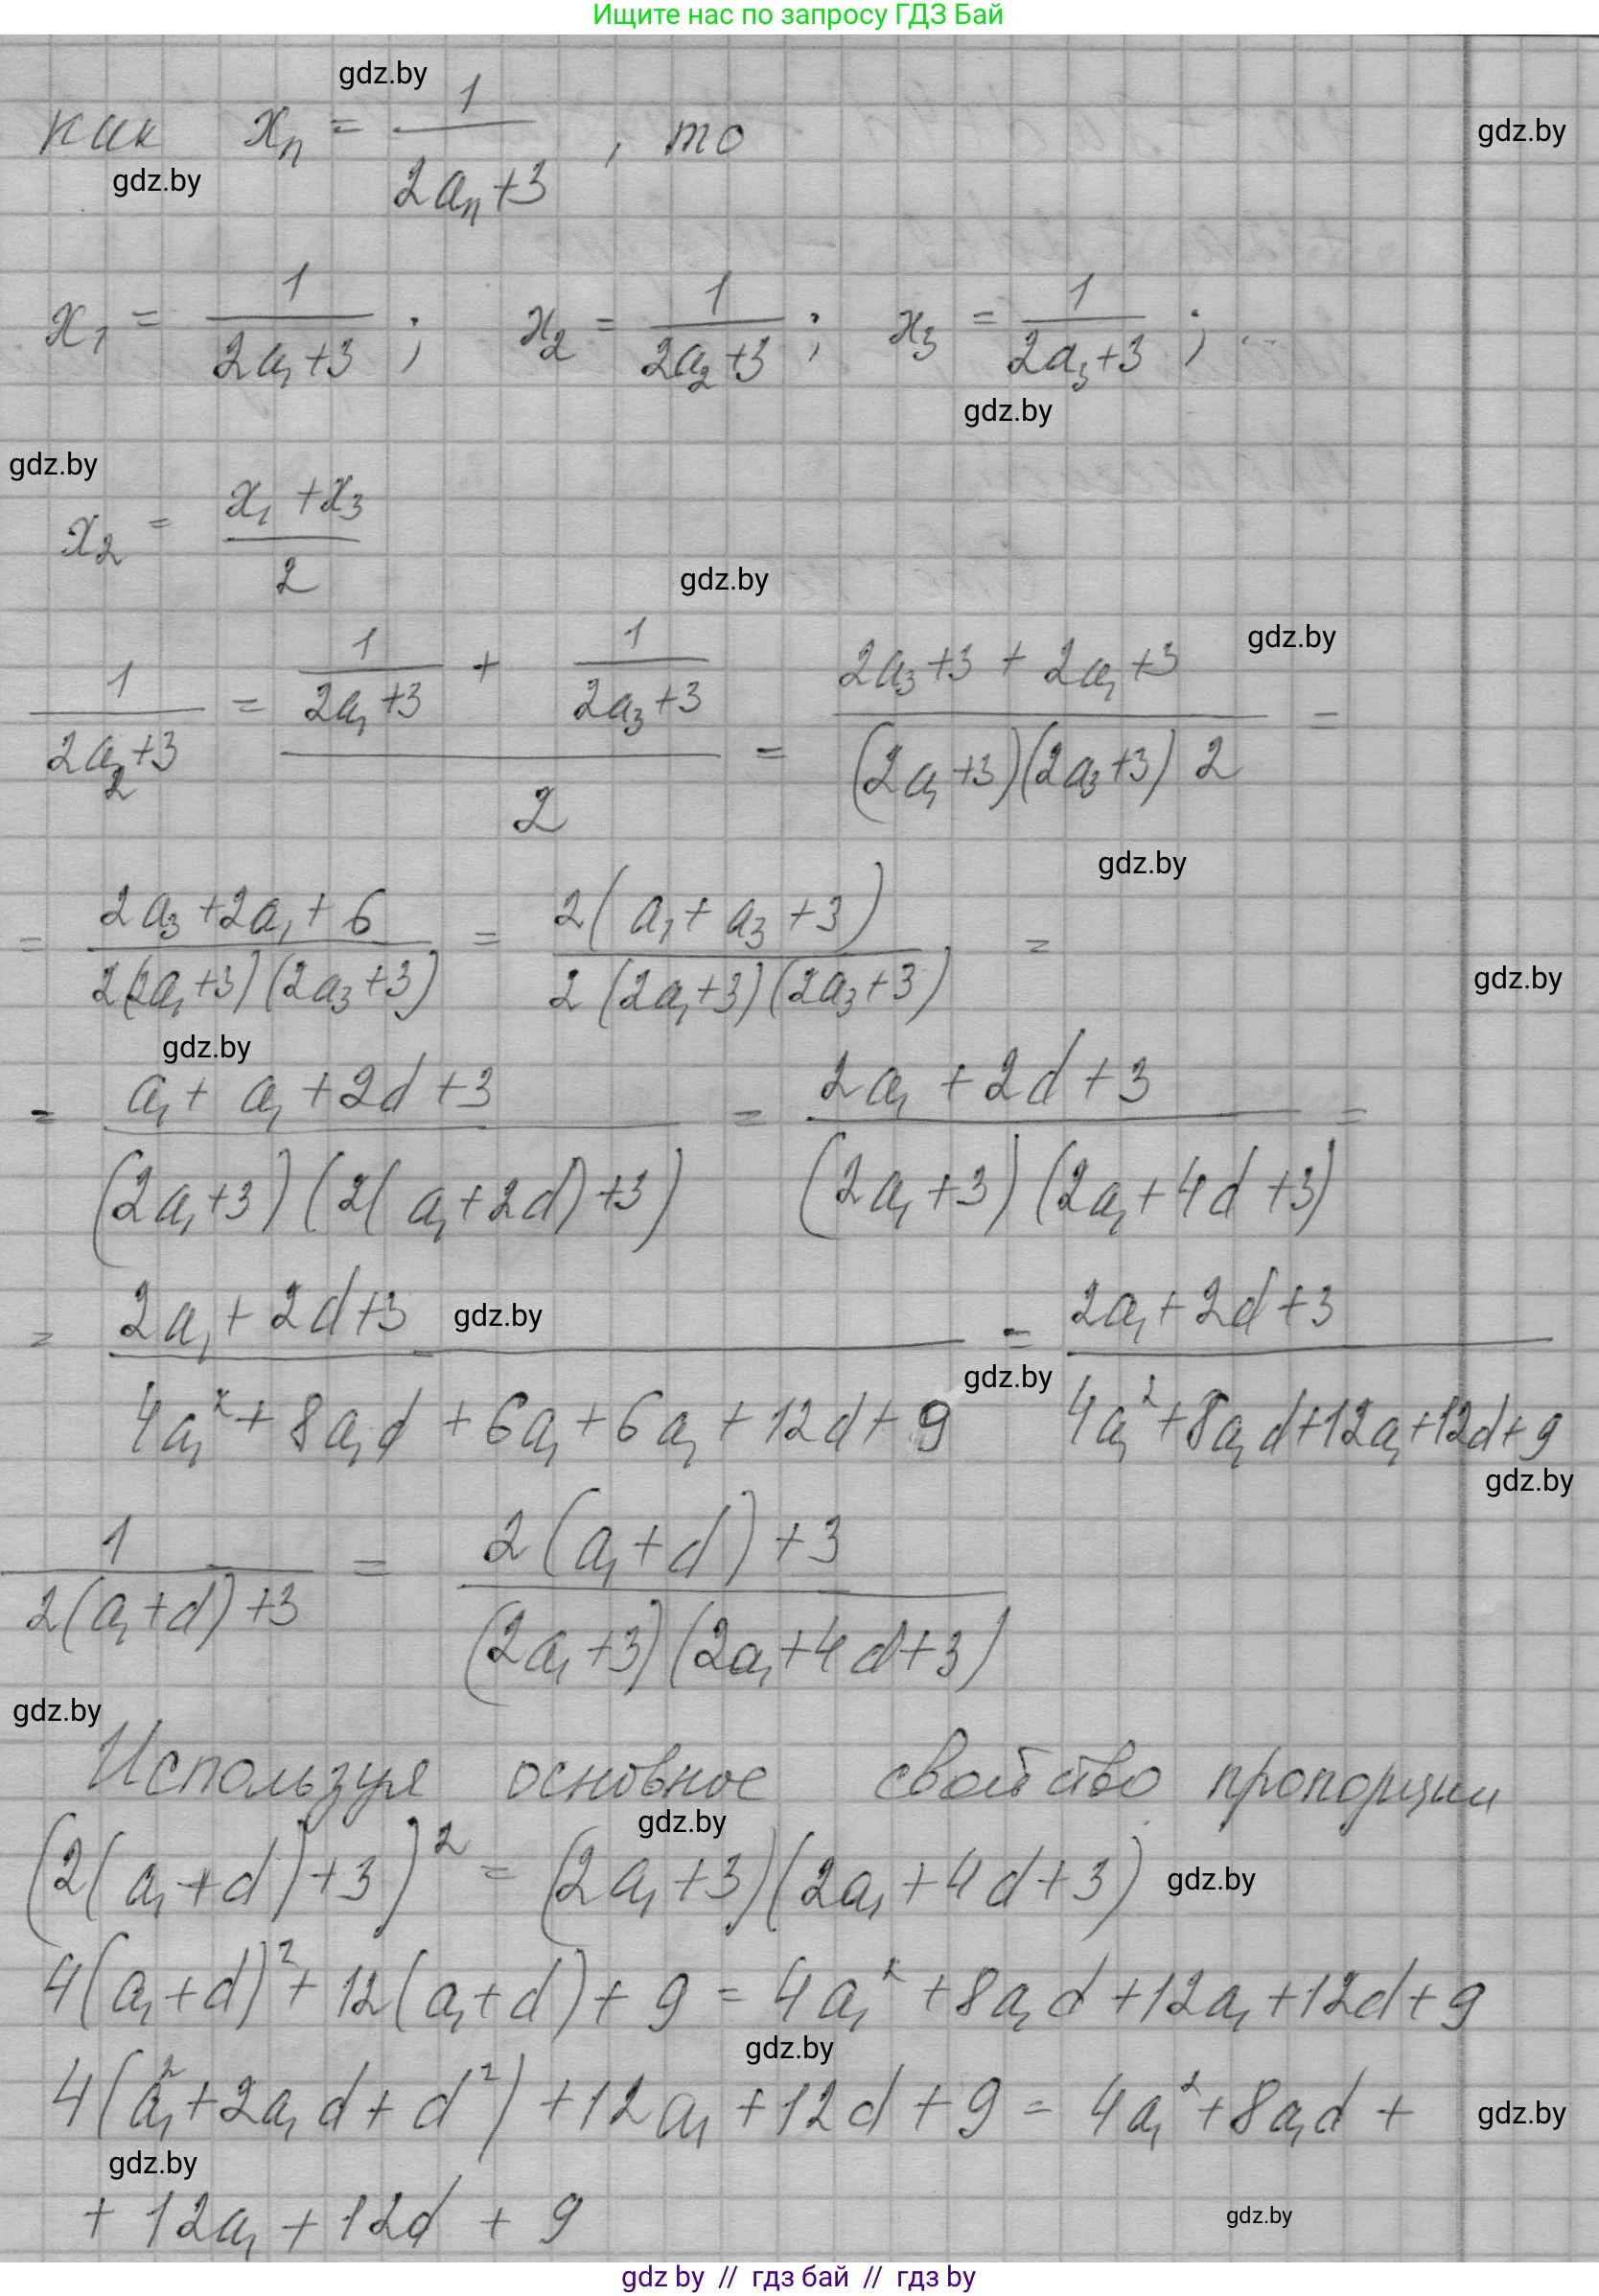 Ищите нас по запросу ГДЗ Бай
gdz.by
как xₙ = 1/(2aₙ+3) , то
gdz.by
gdz.by
x₁ = 1/(2a₁+3) ; x₂ = 1/(2a₂+3) ; x₃ = 1/(2a₃+3) ; ..
gdz.by
gdz.by
x₂ = (x₁+x₃)/2
gdz.by
gdz.by
1/(2a₂+3) = (1/(2a₁+3) + 1/(2a₃+3))/2 = (2a₃+3 + 2a₁+3)/((2a₁+3)(2a₃+3) 2) =
gdz.by
= (2a₃+2a₁+6)/(2(2a₁+3)(2a₃+3)) = 2(a₁+a₃+3)/(2(2a₁+3)(2a₃+3)) =
gdz.by
gdz.by
= (a₁+a₁+2d+3)/((2a₁+3)(2(a₁+2d)+3)) = (2a₁+2d+3)/((2a₁+3)(2a₁+4d+3)) =
gdz.by
= (2a₁+2d+3)/(4a₁²+8a₁d+6a₁+6a₁+12d+9) = (2a₁+2d+3)/(4a₁²+8a₁d+12a₁+12d+9)
gdz.by
gdz.by
1/(2(a₁+d)+3) = (2(a₁+d)+3)/((2a₁+3)(2a₁+4d+3))
gdz.by
Используя основное свойство пропорции
gdz.by
(2(a₁+d)+3)² = (2a₁+3)(2a₁+4d+3)
gdz.by
4(a₁+d)²+12(a₁+d)+9 = 4a₁²+8a₁d+12a₁+12d+9
gdz.by
4(a₁²+2a₁d+d²)+12a₁+12d+9 = 4a₁²+8a₁d+
gdz.by
gdz.by
+12a₁+12d+9
gdz.by
gdz by // гдз бай // гдз by